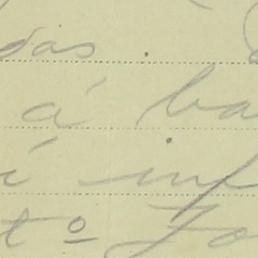 das .
á ba
í inf
tº Jo